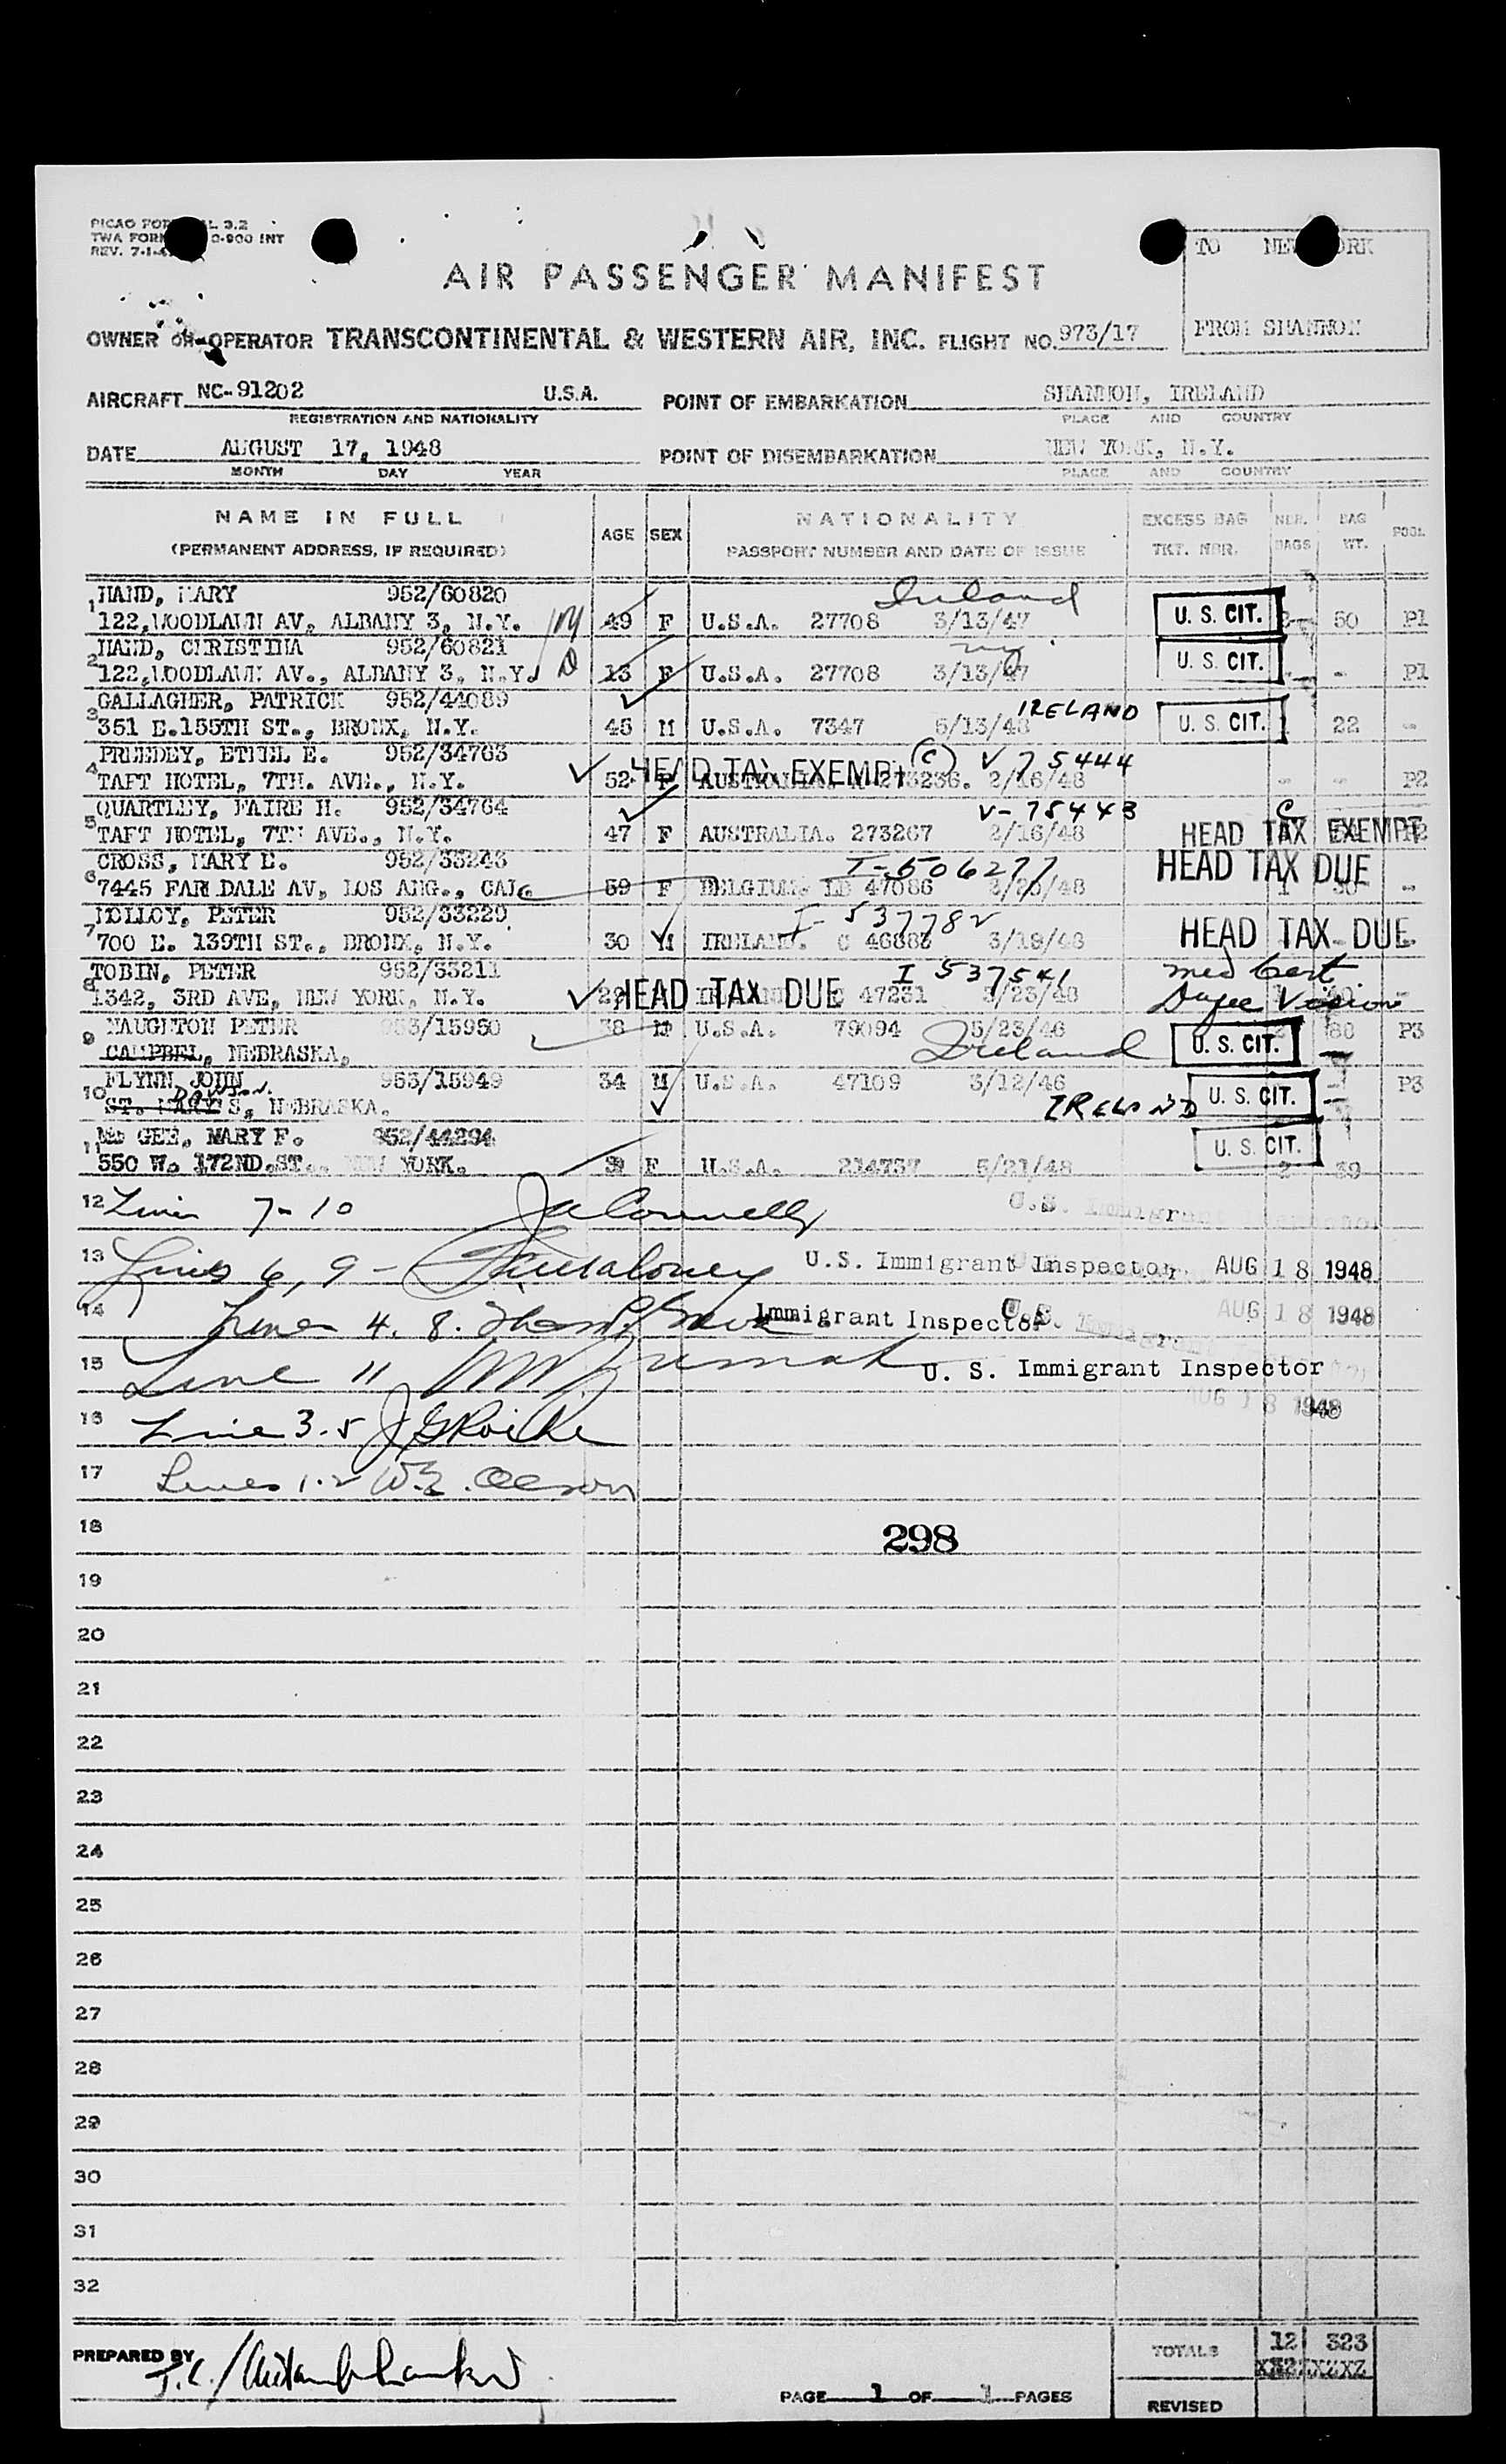 TWA FORM
REV. 7-1-4
TO NEW YORK
FROM SHANNON
AIR PASSENGER MANIFEST
OWNER OR OPERATOR TRANSCONTINENTAL & WESTERN AIR, INC. FLIGHT NO. 973/17
AIRCRAFT NC-91202 U.S.A. POINT OF EMBARKATION SHANNON, IRELAND
REGISTRATION AND NATIONALITY PLACE AND COUNTRY
DATE AUGUST 17, 1948 POINT OF DISEMBARKATION NEW YORK, N.Y.
MONTH DAY YEAR PLACE AND COUNTRY
NAME IN FULL AGE SEX NATIONALITY EXCESS BAG NBR. BAG POOL
(PERMANENT ADDRESS, IF REQUIRED) PASSPORT NUMBER AND DATE OF ISSUE TKT. NBR. BAGS WT.
HAND, MARY 952/60820 Ireland
1 122, WOODLAWN AV, ALBANY 3, N.Y. 49 F U.S.A. 27708 3/13/47 U. S. CIT. 50 P1
HAND, CHRISTINA 952/60821 ny
2 122, WOODLAWN AV., ALBANY 3, N.Y. 13 F U.S.A. 27708 3/13/47 U. S. CIT. - P1
GALLAGHER, PATRICK 952/44089 IRELAND
3 351 E.155TH ST., BRONX, N.Y. 45 M U.S.A. 7347 5/13/48 U. S. CIT. 1 22 -
PREEDEY, ETHEL E. 952/34763 HEAD TAX EXEMPT (C) V 75444
4 TAFT HOTEL, 7TH. AVE., N.Y. 52 F 273236. 2/16/48 - - P2
QUARTLEY, FAIRE H. 952/34764 V-75443
5 TAFT HOTEL, 7TH AVE., N.Y. 47 F AUSTRALIA. 273267 2/16/48 C HEAD TAX EXEMPT
CROSS, MARY E. 952/33243 I-506277 HEAD TAX DUE
6 7445 FAR DALE AV, LOS ANG., CAL 59 F BELGIUM. 47086 /48 1 -
MOLLOY, PETER 952/33229 I-537782
7 700 E. 139TH ST., BRONX, N.Y. 30 M IRELAND. C 46883 3/19/48 HEAD TAX DUE
TOBIN, PETER 952/33211 I 537541 med Cert
8 1342, 3RD AVE, NEW YORK, N.Y. HEAD TAX DUE 47231 3/23/48 Vision
NAUGHTON PETER 953/15950 38 M U.S.A. 79094 5/23/46 U. S. CIT. 80 P3
9 CAMPBEL, NEBRASKA, Ireland
FLYNN JOHN 953/15949 34 M U.S.A. 47109 3/12/46 U. S. CIT. - P3
10 ST. MARYS, NEBRASKA. IRELAND
Mc GEE, MARY F. 952/44294 U. S. CIT.
11 550 W. 172ND.ST., NEW YORK. F U.S.A. 214737 5/21/48 2 39
12 Lines 7-10 JA Connelly U.S. Immigrant Inspector
13 Lines 6, 9 - Maloney U.S. Immigrant Inspector AUG 18 1948
14 Lines 4. 8. Immigrant Inspector AUG 18 1948
15 Line 11 U. S. Immigrant Inspector
AUG 18 1948
16 Line 3-5
17 Lines 1-2
18 298
19
20
21
22
23
24
25
26
27
28
29
30
31
32
PREPARED BY TOTALS 12 323
PAGE 1 OF 1 PAGES REVISED